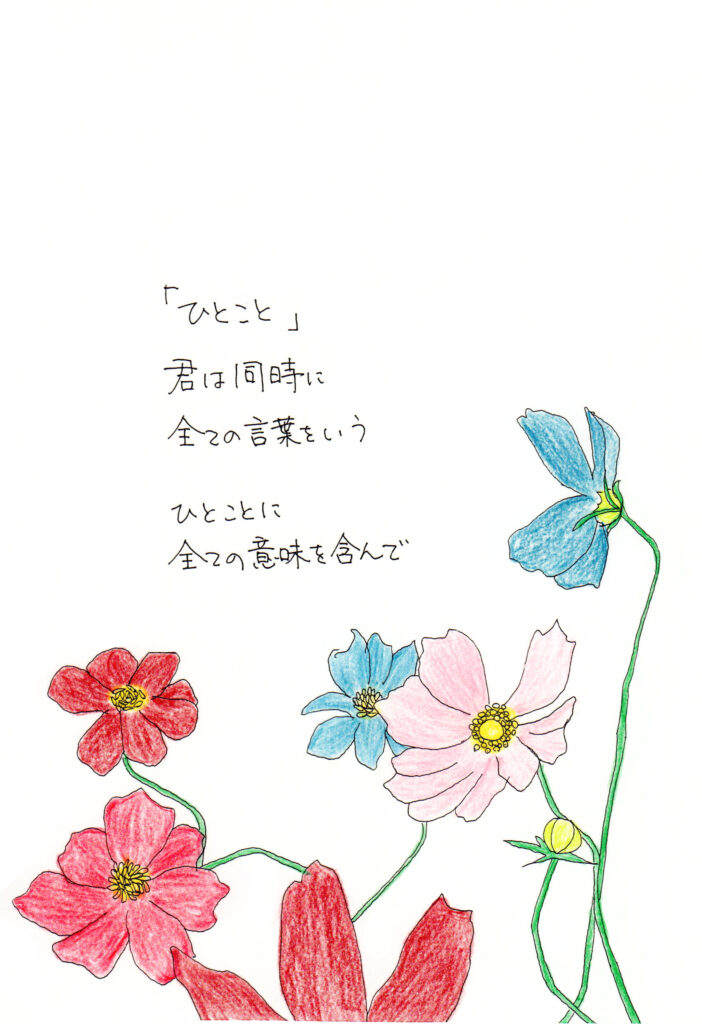 「ひとこと」
君は同時に
全ての言葉をいう
ひとことに
全ての意味を含んで